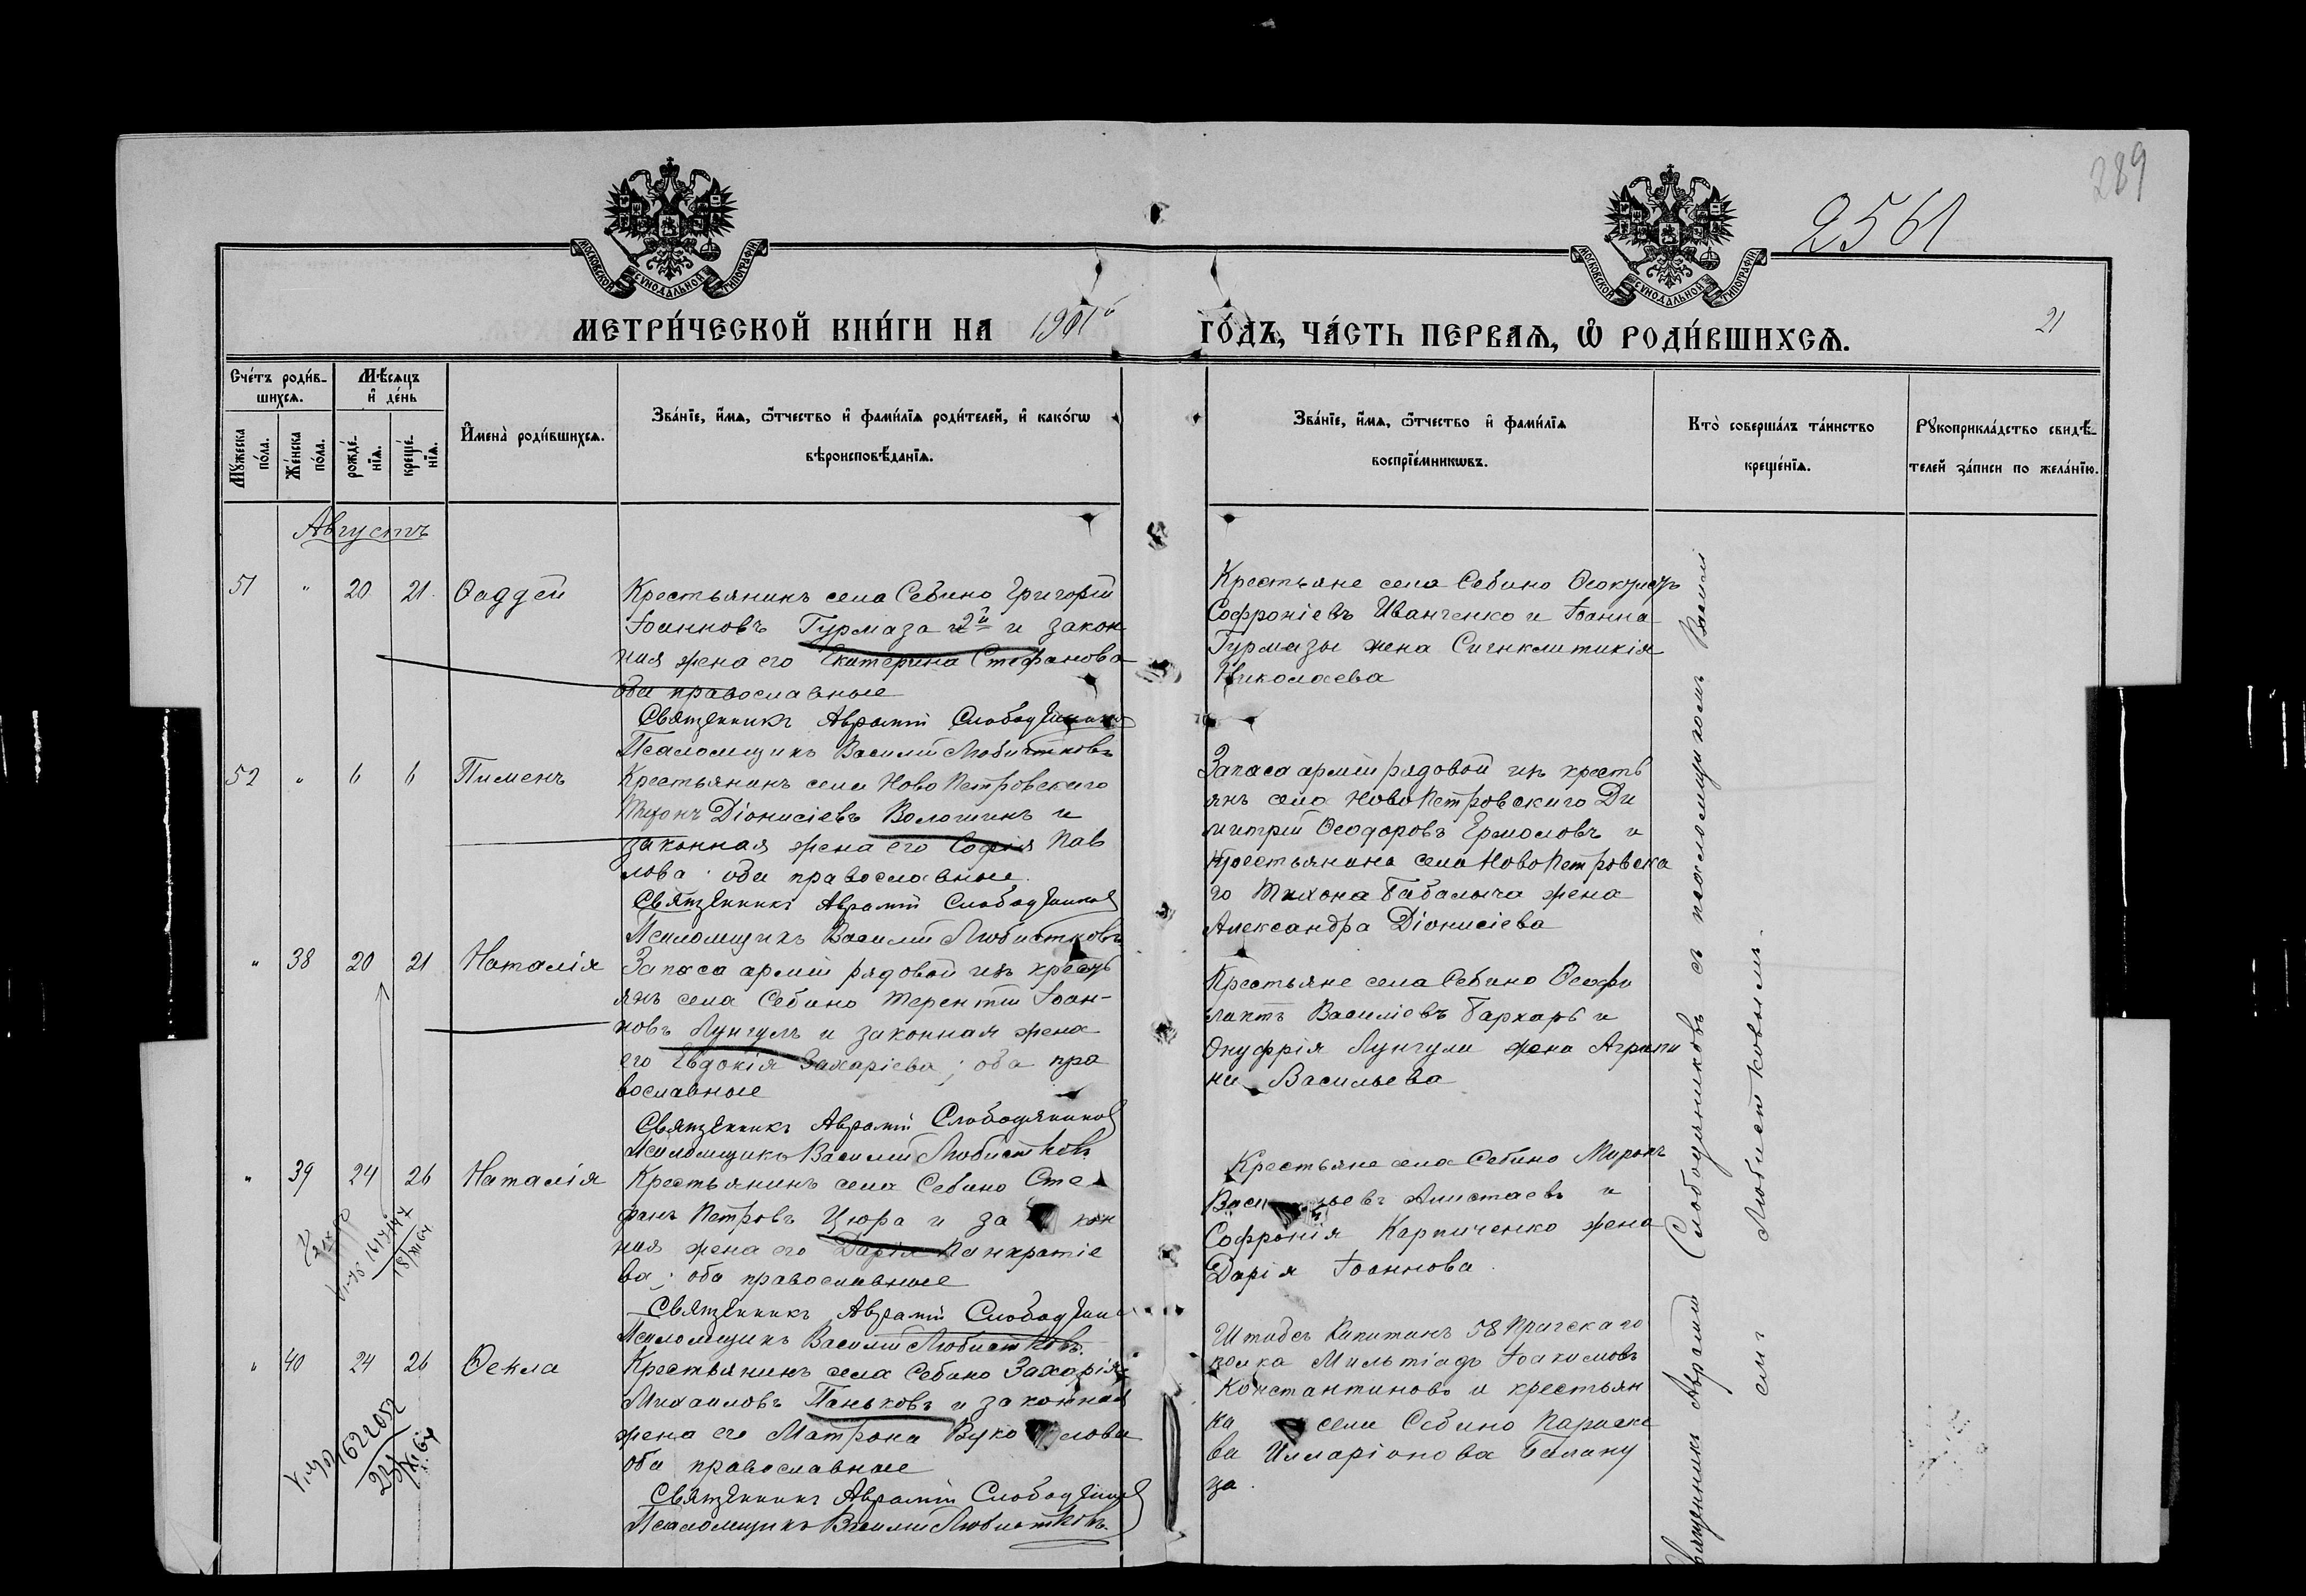 289
2561
МОСКОВСКОЙ СѴНОДАЛЬНОЙ ТИПОГРАФІИ
МОСКОВСКОЙ СѴНОДАЛЬНОЙ ТИПОГРАФІИ
МЕТРИ́ЧЕСКОЙ КНИ́ГИ НА 1901й ГО́ДЪ, ЧА́СТЬ ПЕРВАЯ, Ѡ РОДИ́ВШИХСЯ.
21
Сче́тъ роди́в-
шихся.
Мѣ́сяцъ
и҆ де́нь
Мꙋ́жеска
по́ла.
Же́нска
по́ла.
рожде́-
нїя.
креще́-
нїя.
И҆мена̀ роди́вшихся.
Зва́нїе, и҆́мя, ѻ҆́тчество и҆ фами́лїя роди́телей, и҆ како́гѡ
вѣроисповѣ́данїя.
Зва́нїе, и҆́мя, ѻ҆́тчество и҆ фами́лїя
воспрїе́мникѡвъ.
Кто̀ соверша́лъ та́инство
креще́нїя.
Рꙋкоприкла́дство свидѣ́-
телей за́писи по жела́нїю.
Августъ
51 " 20 21 Ѳаддей
Крестьянинъ села Себино Григорій
Іоанновъ Гурмаза 2й и закон
ная жена его Екатерина Стефанова
оба православные
Священникъ Аврамій Слободяниковъ
Псаломщикъ Василій Любистковъ
Крестьяне села Себино
Софроніевъ Иванченко и Іоанна
Гурмазы жена Сигклитикія
Николаева
52 " 6 6 Пименъ
Крестьянинъ села Ново Петровскаго
Тихонъ Діонисіевъ Волошинъ и
законная жена его Софія Пав
лова оба православные.
Священникъ Аврамій Слободяников
Псаломщикъ Василій Любистковъ
Запаса арміи рядовой изъ кресть
янъ села Ново Петровскаго Ди
митрій Ѳеодоровъ Ермоловъ и
крестьянина села Ново Петровска
го Тихона жена
Александра Діонисіева
" 38 20 21 Наталія
Запаса арміи рядовой изъ кресть
янъ села Себино Терентій Іоан-
новъ Лунгулъ и законная жена
его Евдокія Захаріева; оба пра
вославные
Священникъ Аврамій Слободяников
Псаломщикъ Василій Любистков
Крестьяне села Себино Ѳеофи
лактъ Василіевъ Бархарь и
Онуфрія Лунгула жена Агрипи
на Васильева
" 39 24 26 Наталія
Крестьянинъ села Себино Сте
фанъ Петровъ Цюра и за кон
ная жена его Дарія Панкратіе
ва; оба православные
Священникъ Аврамій Слободяни
Псаломщикъ Василій Любистковъ.
Крестьяне села Себино Миронъ
и
Софронія Карпиченко жена
Дарія Іоаннова.
" 40 24 26 Ѳекла
Крестьянинъ села Себино Захарія
Михаиловъ Паньковъ и законная
жена его Матрона Вуко лова
оба православные
Священникъ Аврамій Слободяников
Псаломщикъ Василій Любистковъ.
Штабсъ Капитанъ 58 Прагскаго
полка Мильтіадъ Іоакимовъ
Константиновъ и крестьян
ка села Себино Параске
ва Илларіонова Балану
ца.
1622052
Священникъ Аврамій Слободяниковъ съ псаломщикомъ Васили
емъ Любистковымъ.